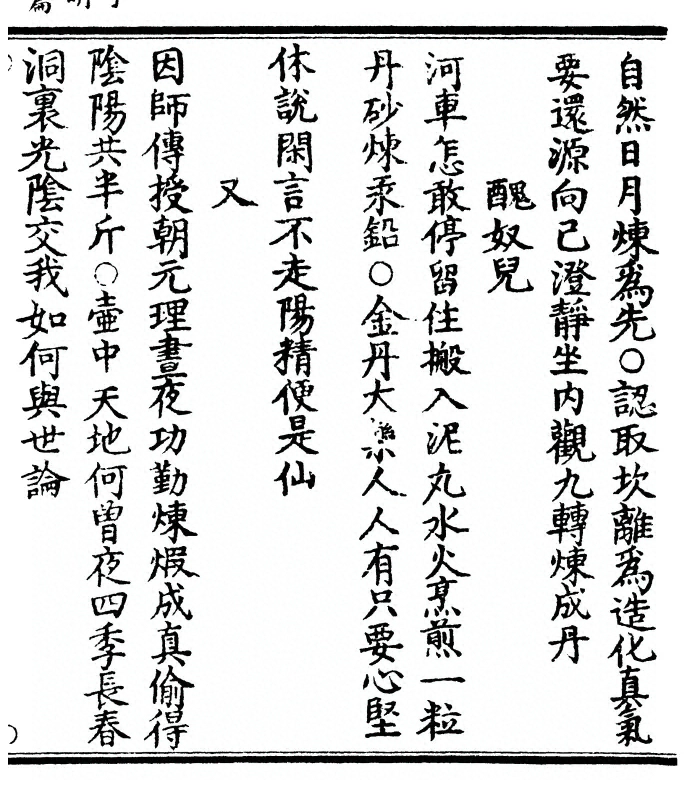 自然日月煉爲先○認取坎離爲造化真氣
要還源向己澄靜坐内觀九轉煉成丹
醜奴兒
河車怎敢停留住搬入泥丸水火烹煎一粒
丹砂煉汞鉛○金丹大藥人人有只要心堅
休說閑言不走陽精便是仙
又
因師傳授朝元理晝夜功勤煉煆成真偷得
陰陽共半斤○壷中天地何曾夜四季長春
洞裏光陰交我如何與世論